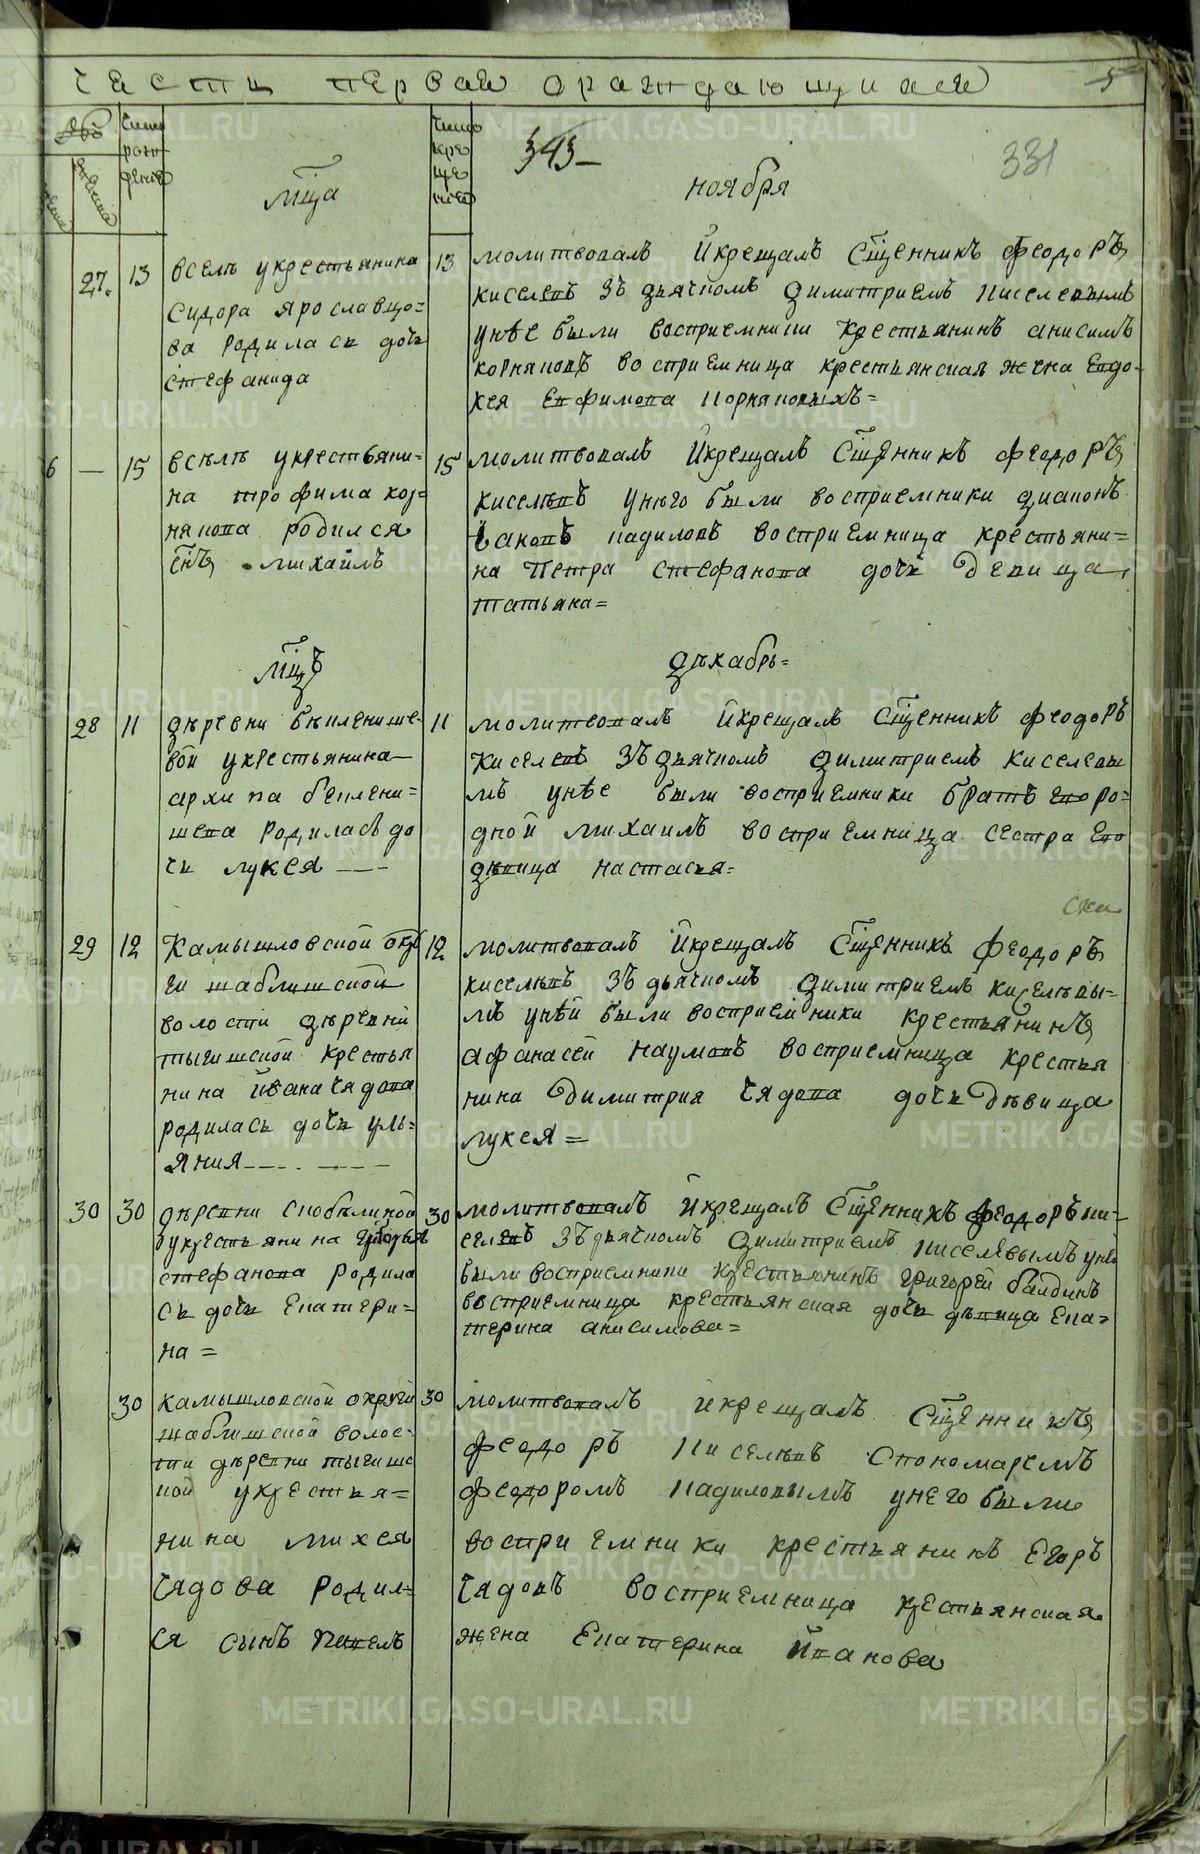 Часть первая ораждающихся 5
Число рождения
Число крещения
343
331
Мца ноября
27. 13 всели укрестьянина
Сидора Ярославцо=
ва родилась дочь
Стефанида
13 молитвовалъ Йкрещалъ Сщенникъ Феодоръ
Киселевъ Зъ дьячкомъ Димитриемъ Киселевымъ
унѣе были восприемники крестьянинъ анисимъ
корняковъ восприемница крестьянская жена Евдо-
кея Ефимова Корняковыхъ=
6 — 15 вселѣ укрестьяни-
на трофима кор=
някова родился
снъ михайлъ
15 молитвовалъ Йкрещалъ Сщенникъ феодоръ
киселевъ унего были восприемники диаконъ
Іаковъ кадиловъ восприемница крестьяни=
на Петра Стефанова дочь девица
татьяна=
Мцъ декабрь=
28 11 деревни
вой укрестьянина
архипа
шева родилась до
чь лукея
11 молитвовалъ Йкрещалъ Сщенникъ феодоръ
Киселевъ Зъ дьячкомъ димитриемъ киселевы
мъ унѣе были восприемники братъ его ро=
дной михаилъ восприемница сестра его
дѣвица настасья=
29 12 Камышловской округи
шаблишской
волости деревни
тыгишской крестья
нина Йвана Чядова
родилась дочь уль=
яния
12 молитвовалъ Йкрещалъ Сщенникъ феодоръ
киселевъ Зъ дьячкомъ димитриемъ киселевы=
мъ унѣй были восприемники крестьянинъ
афанасей наумовъ восприемница крестья
нина димитрия Чядова дочь дѣвица
лукея=
30 30 деревни
укрестьянина
стефанова родила
сь дочь Екатери=
на=
30 молитвовалъ Йкрещалъ Сщенникъ феодоръ ки=
селевъ Зъ дьячкомъ димитриемъ киселевымъ унѣй
были восприемники крестьянинъ григорей балдинъ
восприемница крестьянская дочь дѣвица Ека=
терина анисимова=
30 камышловской округи
шаблишской волос-
ти деревни тыгишс
кой укрестья=
нина михея
Чядова родил=
ся сынъ Павелъ
30 молитвовалъ Йкрещалъ Сщенникъ
феодоръ Киселевъ Спономаремъ
федоромъ кадиловымъ унего были
восприемники крестьянинъ Егоръ
Чядовъ восприемница крестьянская
жена Екатерина Йванова